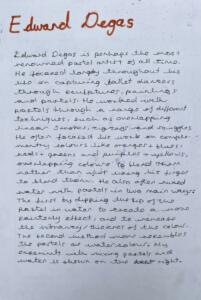 Edward Degas
Edward Degas is perhaps the most
renowned pastel artist of all time.
He focused largely throughout his
life on capturing ballet dancers
through sculptures, paintings
and pastels. He worked with
pastels through a range of different
techniques, such as overlapping
linear strokes, zig-zags and squiggles.
He often focused his work on comple-
mentary colours like oranges + blues,
reds + greens and purples + yellows,
overlapping colours to blend them
rather than using his finger
to blend them. He also often mixed
water with pastels in two main ways.
The first by dipping the tip of the
pastel in water to create a more
painterly effect, and to increase
the vibrancy/thickness of the colour.
The second method more resembles
the pastels as watercolour. My
experiment with mixing pastels and
water is shown on the right.